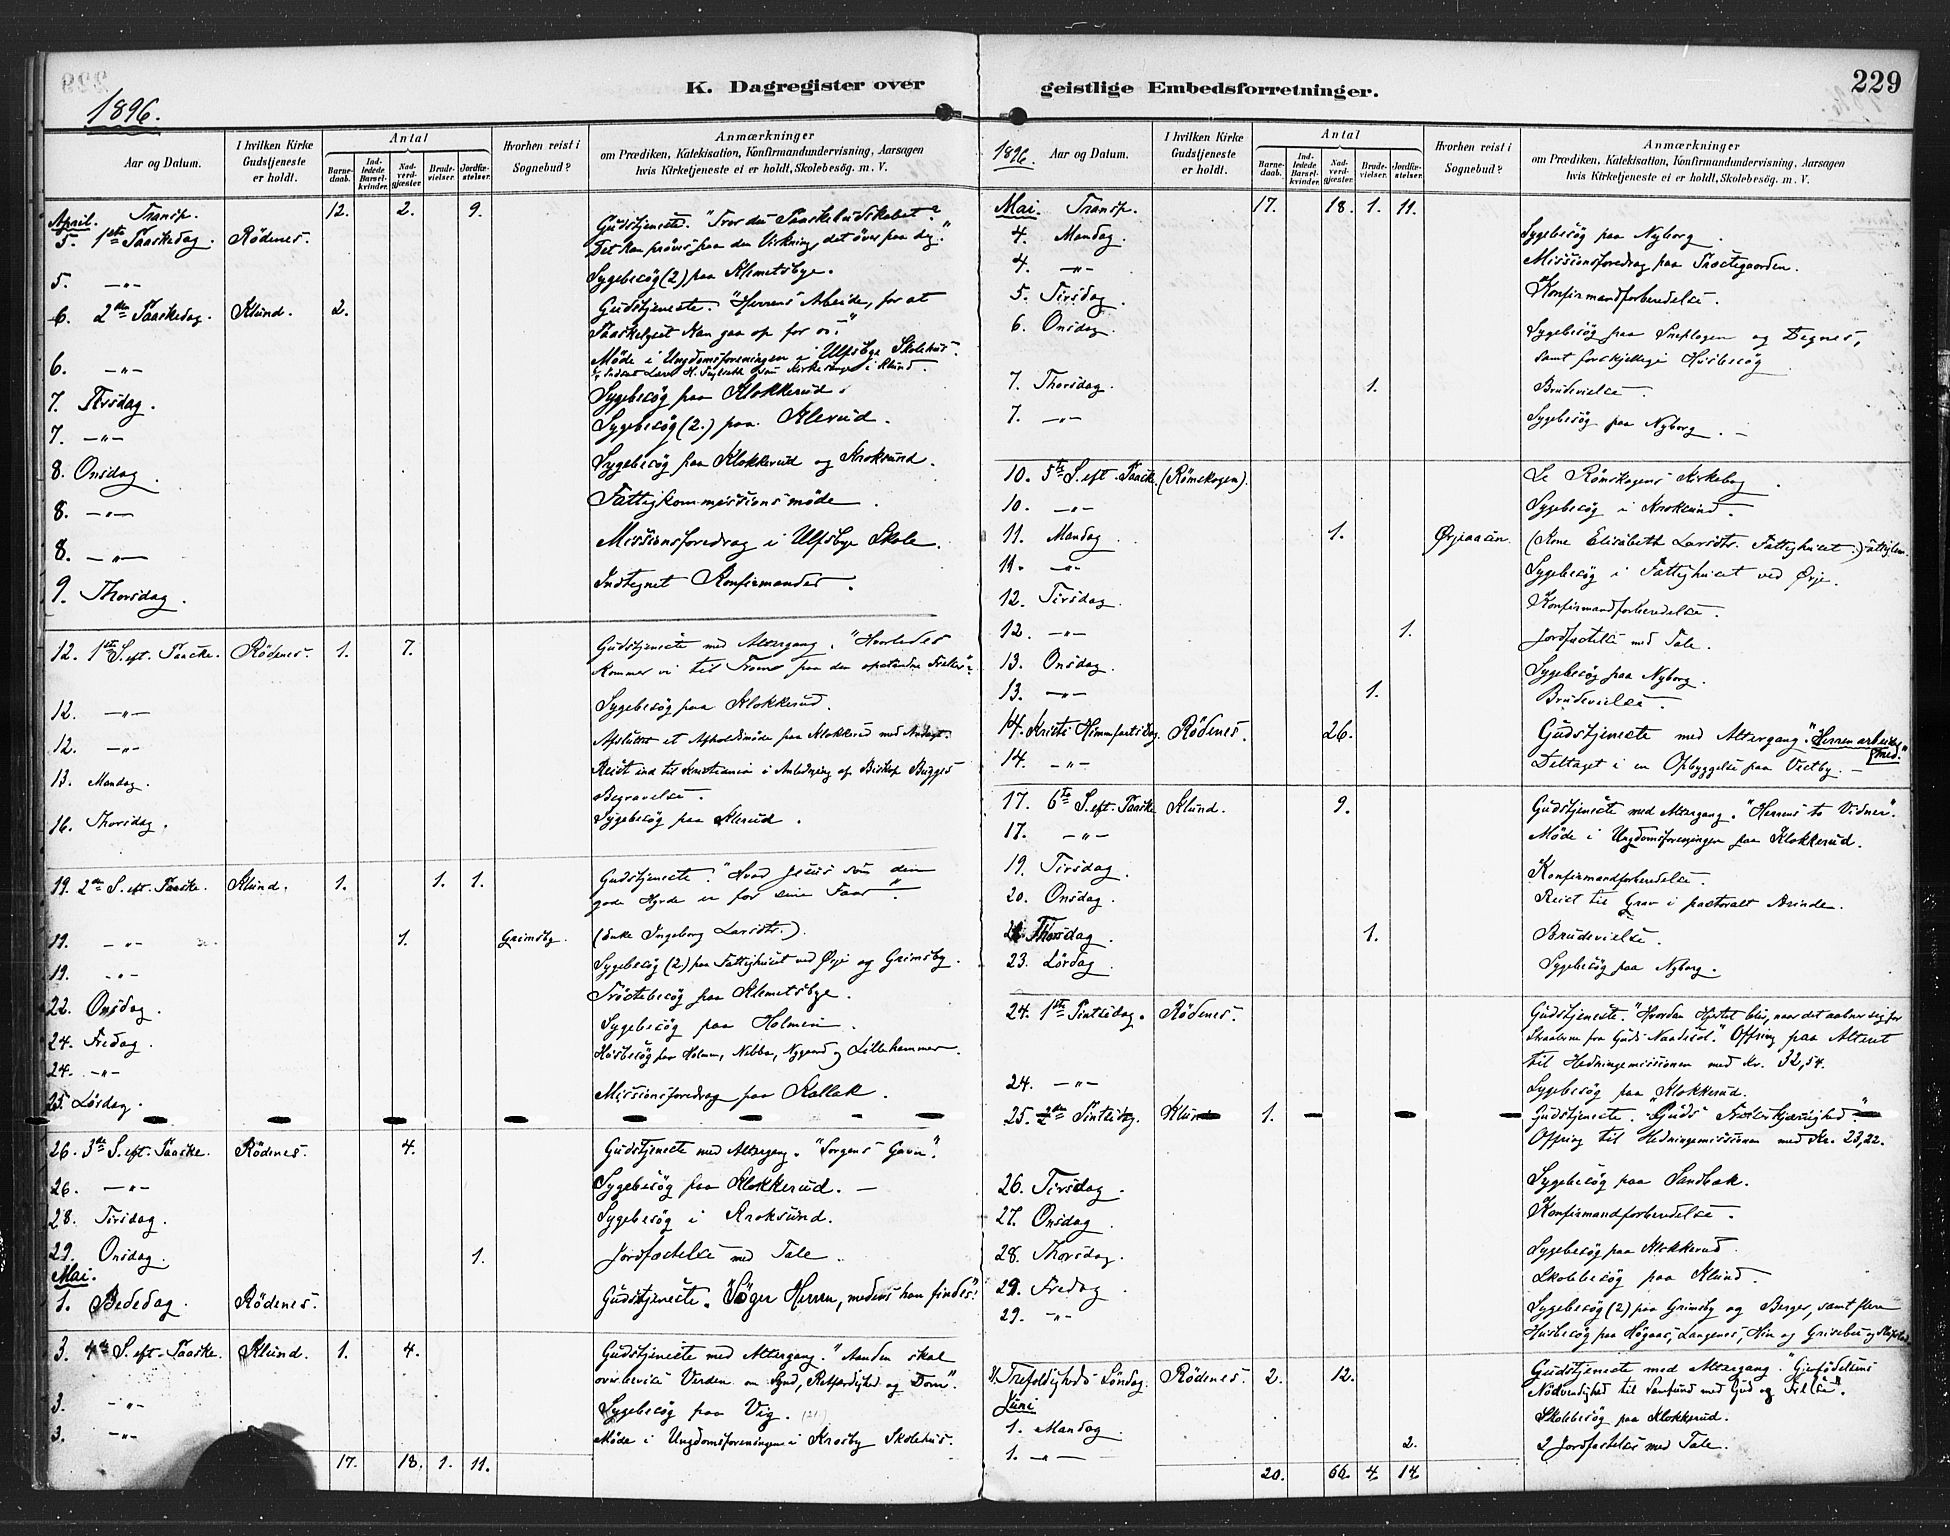 K. Dagregister over
1896.
Aar og Datum. I hvilken Kirke Gudstjeneste er holdt. Antal Barnedaab. Indledede Barselkvinder. Nadverdgjæster Brudevielser. Jordfæstelser. Hvorhen reist i Sognebud? Anmærkninger om Prædiken, Katekisation, Konfirmandundervisning, Aarsagen hvis Kirketjeneste ei er holdt, Skolebesög. m. V.
April. Transp. 12. 2. 9.
5. 1ste Paaskedag. Rödenes. Gudstjeneste. "Tror du Paaskebudskabet?
Det kan prøves paa den Virkning, det øver paa dig."
5. -"- Sygebesög (2) paa Klemetsbye.
6. 2den Paaskedag. Klund. 2. Gudstjeneste. "Herrens Arbeide, for at
Paaskelyset kan gaa op for os."
6. -"- Møde i Ungdomsforeningen i Ulfsbye Skolehus.
7. Tirsdag. Sygebesög paa Klokkerud.
7. -"- Sygebesög (2.) paa Klerud.
8. Onsdag. Sygebesög paa Klokkerud og Kroksund.
8. -"- Fattigkommissionsmöde.
8. -"- Missionsforedrag i Ulfsbye Skole.
9. Thorsdag. Indtegnet Konfirmander.
12. 1ste S. eft. Paaske. Rödenes. 1. 7. Gudstjeneste med Altergang. "Hvorledes
kommer vi til Troen paa den opstandne Frelser."
12. -"- Sygebesög paa Klokkerud.
12. -"- Afsluttet et Afholdsmöde paa Klokkerud med Andagt.
13. Mandag. Reist ind til Kristiania i Anledning af Biskop Bugges
Begravelse.
16. Thorsdag. Sygebesög paa Klerud.
19. 2den S. eft. Paaske. Klund. 1. 1. 1. Gudstjeneste. "Hvad Jesus som den
gode Hyrde er for sine Faar."
19. -"- 1. Grimsby. (Enke Ingeborg Larsdtr.)
19. -"- Sygebesög (2) paa Fattighuset ved Ørje og Grimsby.
22. Onsdag. Tröstebesög paa Klemetsbye.
24. Fredag. Sygebesög paa Holmen.
24. -"- Husbesög paa Holmen, Nebba, Nygaard og Lillehammer.
25. Lörsdag. Missionsforedrag paa Kallak.
26. 3die S. eft. Paaske. Rödenes. 4. Gudstjeneste med Altergang. "Sorgens Gavn".
26. -"- Sygebesög paa Klokkerud.
28. Tirsdag. Sygebesög i Kroksund.
29. Onsdag. 1. Jordfæstelse med Tale.
Mai.
1. Bededag. Rödenes. Gudstjeneste. "Söger Herren, medens han findes."
3. 4de S. eft. Paaske. Klund. 1. 4. Gudstjeneste med Altergang. "Aanden skal
overbevise Verden om Synd, Retfærdighed og Dom".
3. -"- Sygebesög paa Vig.
3. -"- Möde i Ungdomsforeningen i Krosby Skolehus.
17. 18. 1. 11.
geistlige Embedsforretninger.
229
1896. Aar og Datum. I hvilken Kirke Gudstjeneste er holdt. Antal Barnedaab. Indledede Barselkvinder. Nadverdgjæster Brudevielser. Jordfæstelser. Hvorhen reist i Sognebud? Anmærkninger om Prædiken, Katekisation, Konfirmandundervisning, Aarsagen hvis Kirketjeneste ei er holdt, Skolebesög. m. V.
Mai. Transp. 17. 18. 1. 11.
4. Mandag. Sygebesög paa Nyborg.
4. -"- Missionsforedrag paa Præstegaarden.
5. Tirsdag. Konfirmandforberedelse.
6. Onsdag. Sygebesög paa og Degnes,
samt forskjellige Husbesög
7. Thorsdag. 1. Brudevielse.
7. -"- Sygebesög paa Nyborg.
10. 5te S. eft. Paaske. (Römskogen). Se Römskogens Kirkebog.
10. -"- Sygebesög i Kroksund.
11. Mandag. 1. Ørjeaasen. (Kone Elisabeth Larsdtr. Fattighuset.)
11. -"- Sygebesög i Fattighuset ved Ørje.
12. Tirsdag. Konfirmandforberedelse.
12. -"- 1. Jordfæstelse med Tale.
13. Onsdag. Sygebesög paa Nyborg.
13. -"- 1. Brudevielse.
14. Kristi Himmfartsdag. Rödenes. 26. Gudstjeneste med Altergang. "Herren arbeider
med."
14. -"- Deltaget i en Opbyggelse paa Vestby.
17. 6te S. eft. Paaske Klund. 9. Gudstjeneste med Altergang. "Herrens to Vidner".
17. -"- Møde i Ungdomsforeningen paa Klokkerud.
19. Tirsdag. Konfirmandforberedelse.
20. Onsdag. Reist til Grav i pastoralt Ærinde.
21. Thorsdag. 1. Brudevielse.
23. Lördag. Sygebesög paa Nyborg.
24. 1ste Pintsedag. Rödenes. Gudstjeneste. "Hvordan Hjertet blir, naar det aabner sig for
Straalerne fra Guds Naadesol." Offring paa Alteret
til Hedningemissionen med Kr. 32,54.
24. -"- Sygebesög paa Klokkerud.
25. 2den Pintsedag. Klund 1. Gudstjeneste. "Guds Kjærlighed"
Offring til Hedningemissionen med Kr. 23,22.
26. Tirsdag. Sygebesög paa Sandbæk.
27. Onsdag. Konfirmandforberedelse.
28. Thorsdag. Sygebesög paa Klokkerud.
29. Fredag. Skolebesög paa Klund.
29. -"- Sygebesög (2) paa Grimsby og Berger, samt flere
Husbesög paa Högaas, Langenes, og
31. Trefoldigheds Söndag. Rödenes. 2. 12. Gudstjeneste med Altergang. "Gjenfödelsens
Nödvendighed til Samfund med Gud og Frelse".
Juni
1. Mandag. Skolebesög paa Klokkerud.
1. -"- 2. 2 Jordfæstelser med Tale.
20. 66. 4. 14.